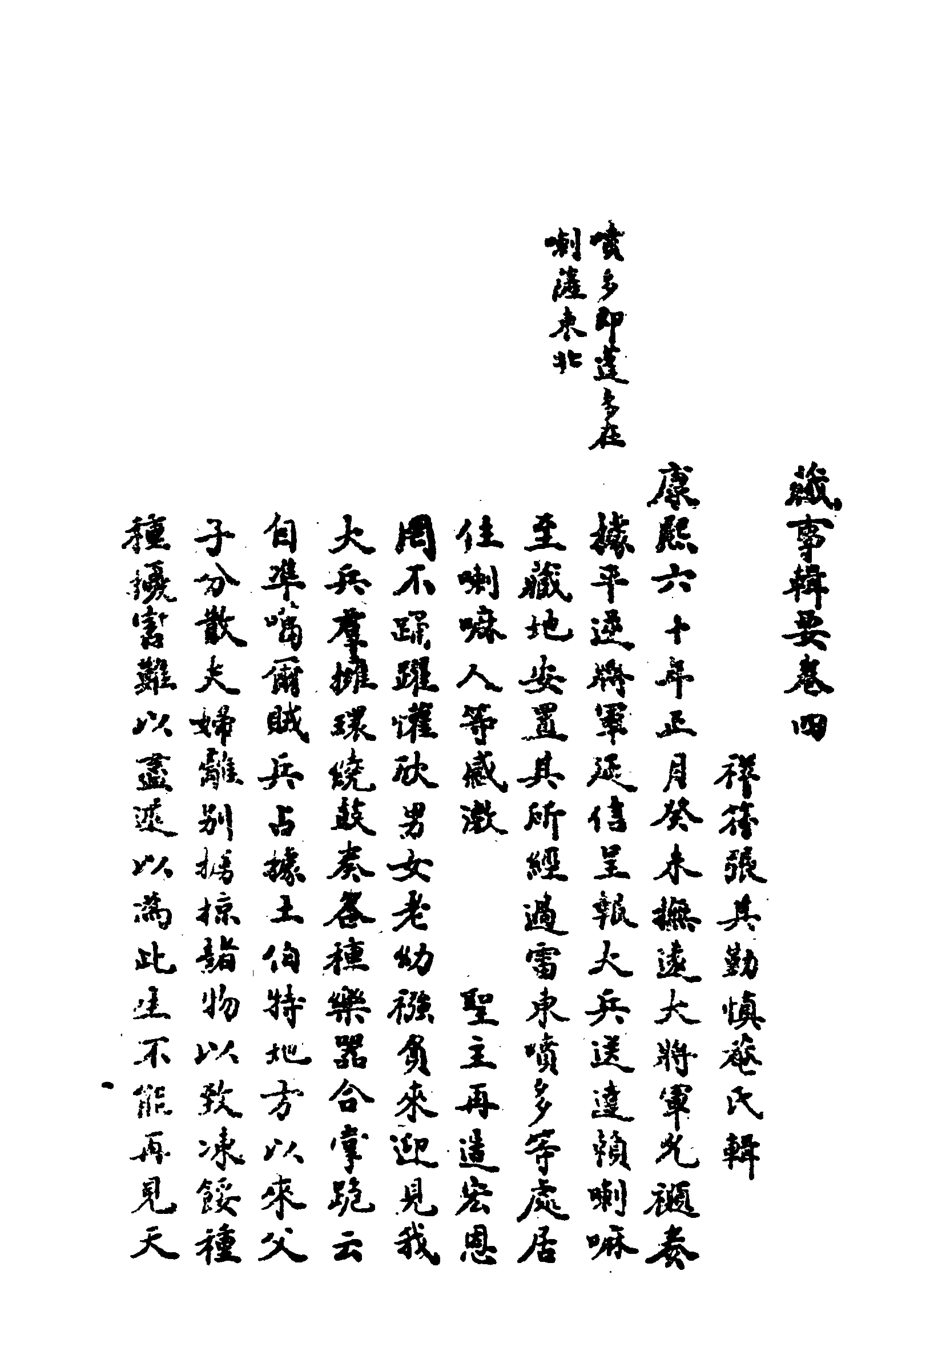 藏事輯要卷四
祥符張其勤慎菴氏輯
康熙六十年正月癸未撫遠大將軍允禵奏
據平逆將軍延信呈報大兵送達賴喇嘛
至藏地安置其所經過雷東噴多等處居
住喇嘛人等感激 聖主再造宏恩
罔不踴躍懽欣男女老幼襁負來迎見我
大兵羣擁環繞鼓奏各種樂器合掌跪云
自準噶爾賊兵占據土伯特地方以來父
子分散夫婦離別擄掠諸物以致凍餒種
種擾害難以盡述以為此生不能再見天
噴多即蓬多在
喇薩東北